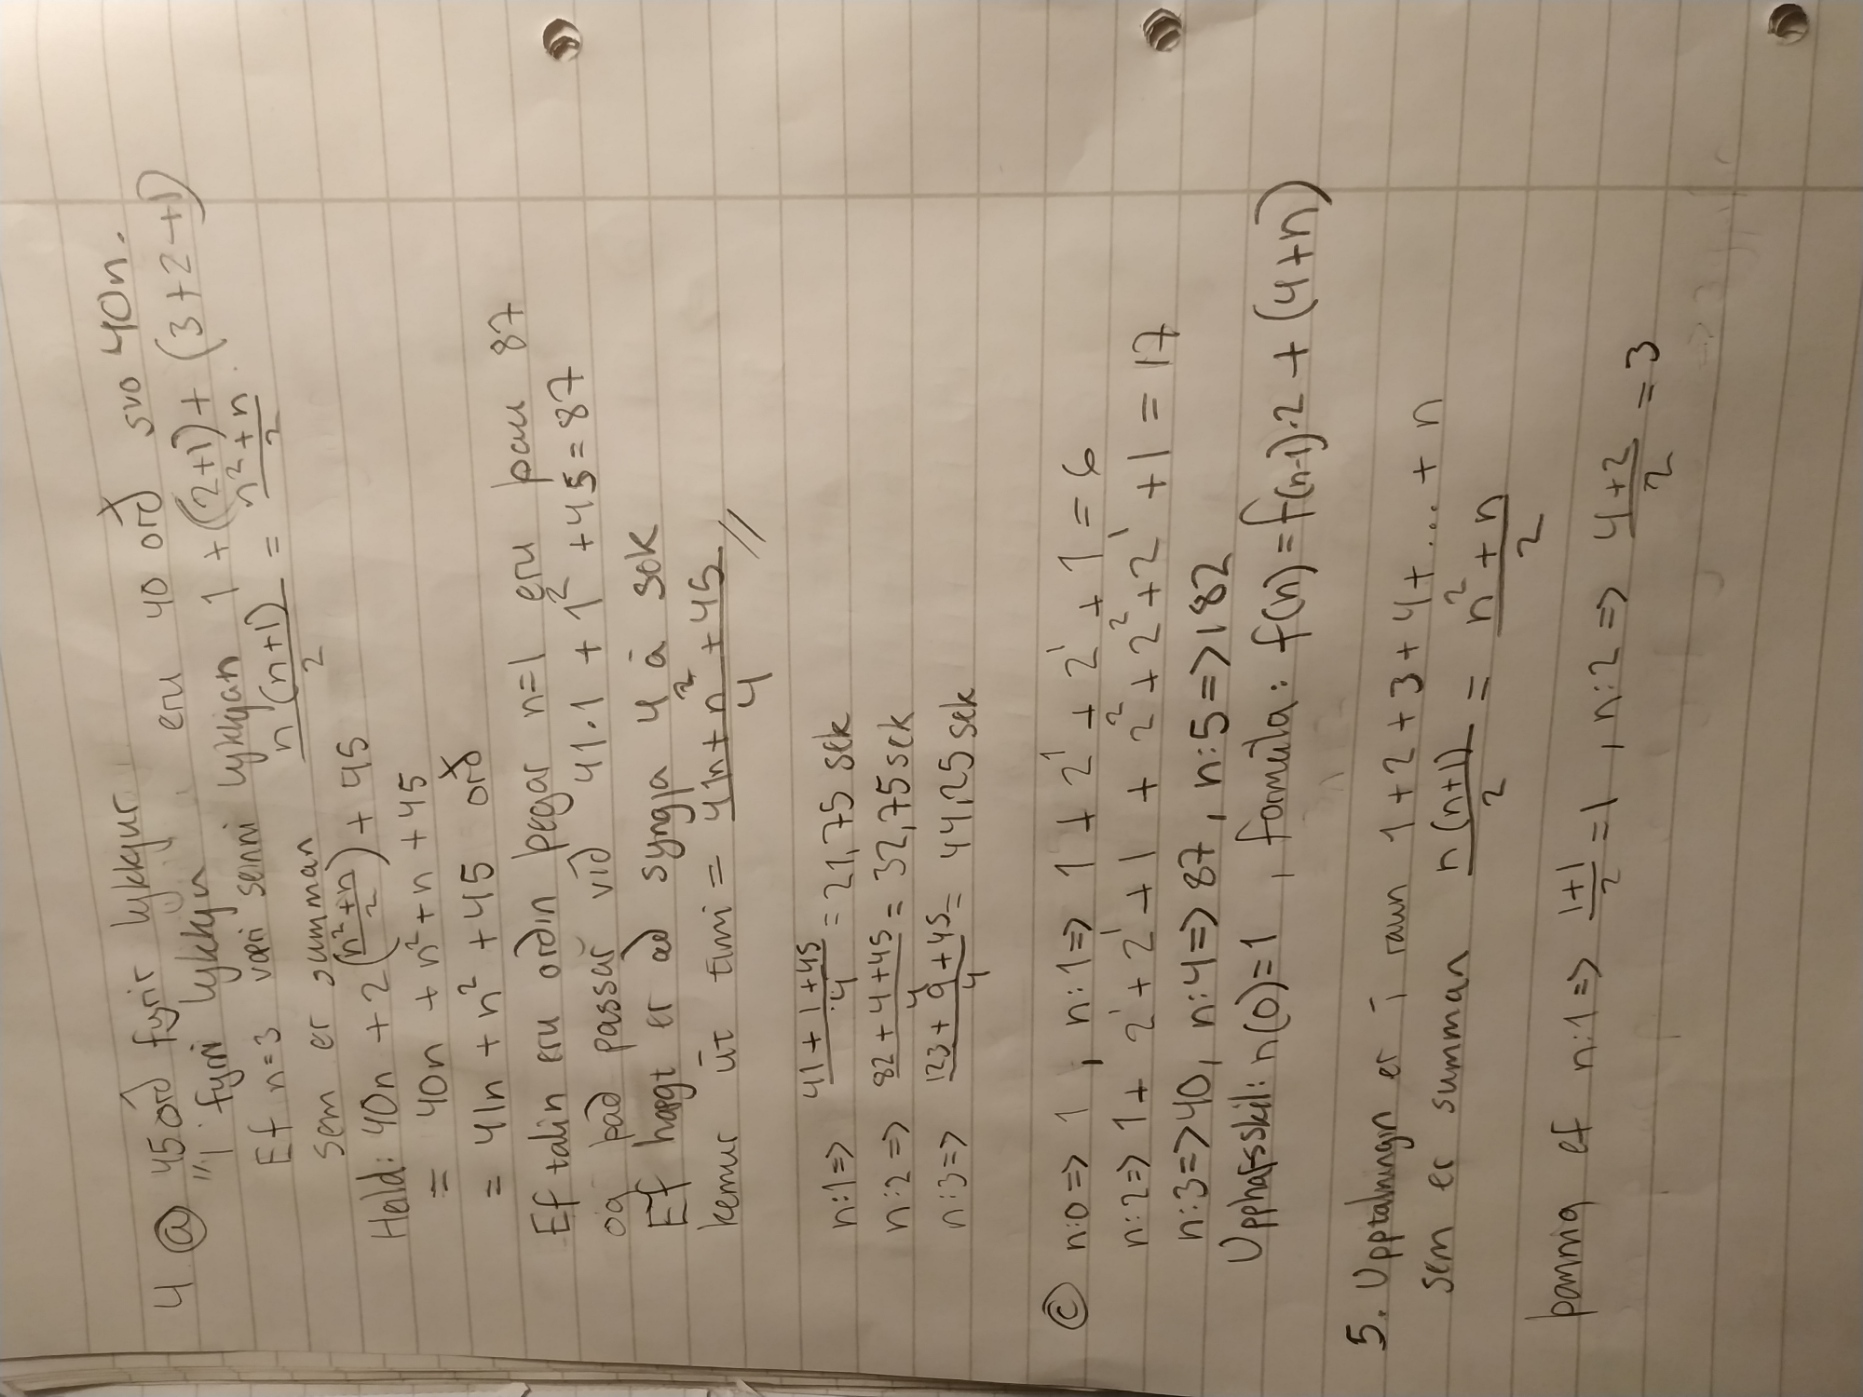 4 ⓐ 45 orð fyrir lykkjur
"Í fyrri lykkju eru 40 orð svo 40n.
Ef n=3 væri seinni lykkjan 1 + (2+1) + (3+2+1)
sem er summan n(n+1)/2 = n²+n/2.
Heild: 40n + 2(n²+n/2) + 45
= 40n + n² + n + 45
= 41n + n² + 45 orð
Ef talin eru orðin þegar n=1 eru þau 87
og það passar við 41·1 + 1² + 45 = 87
Ef hægt er að syngja 4 á sek
kemur út tími = 41n + n² + 45/4 //
n:1=> 41 + 1 + 45/4 = 21,75 sek
n:2=> 82 + 4 + 45/4 = 32,75 sek
n:3=> 123 + 9 + 45/4 = 44,25 sek
ⓒ n:0=> 1 , n:1=> 1 + 2¹ + 2¹ + 1 = 6
n:2=> 1 + 2¹ + 2¹ + 1 + 2² + 2² + 2¹ + 1 = 17
n:3=>40, n:4=> 87, n:5=>182
Upphafsskil: n(0)=1 , formúla: f(n) = f(n-1)·2 + (4+n)
5. Upptalningin er í raun 1+2+3+4+...+n
sem er summan n(n+1)/2 = n²+n/2
þannig ef n:1=> 1+1/2 = 1 , n:2=> 4+2/2 = 3